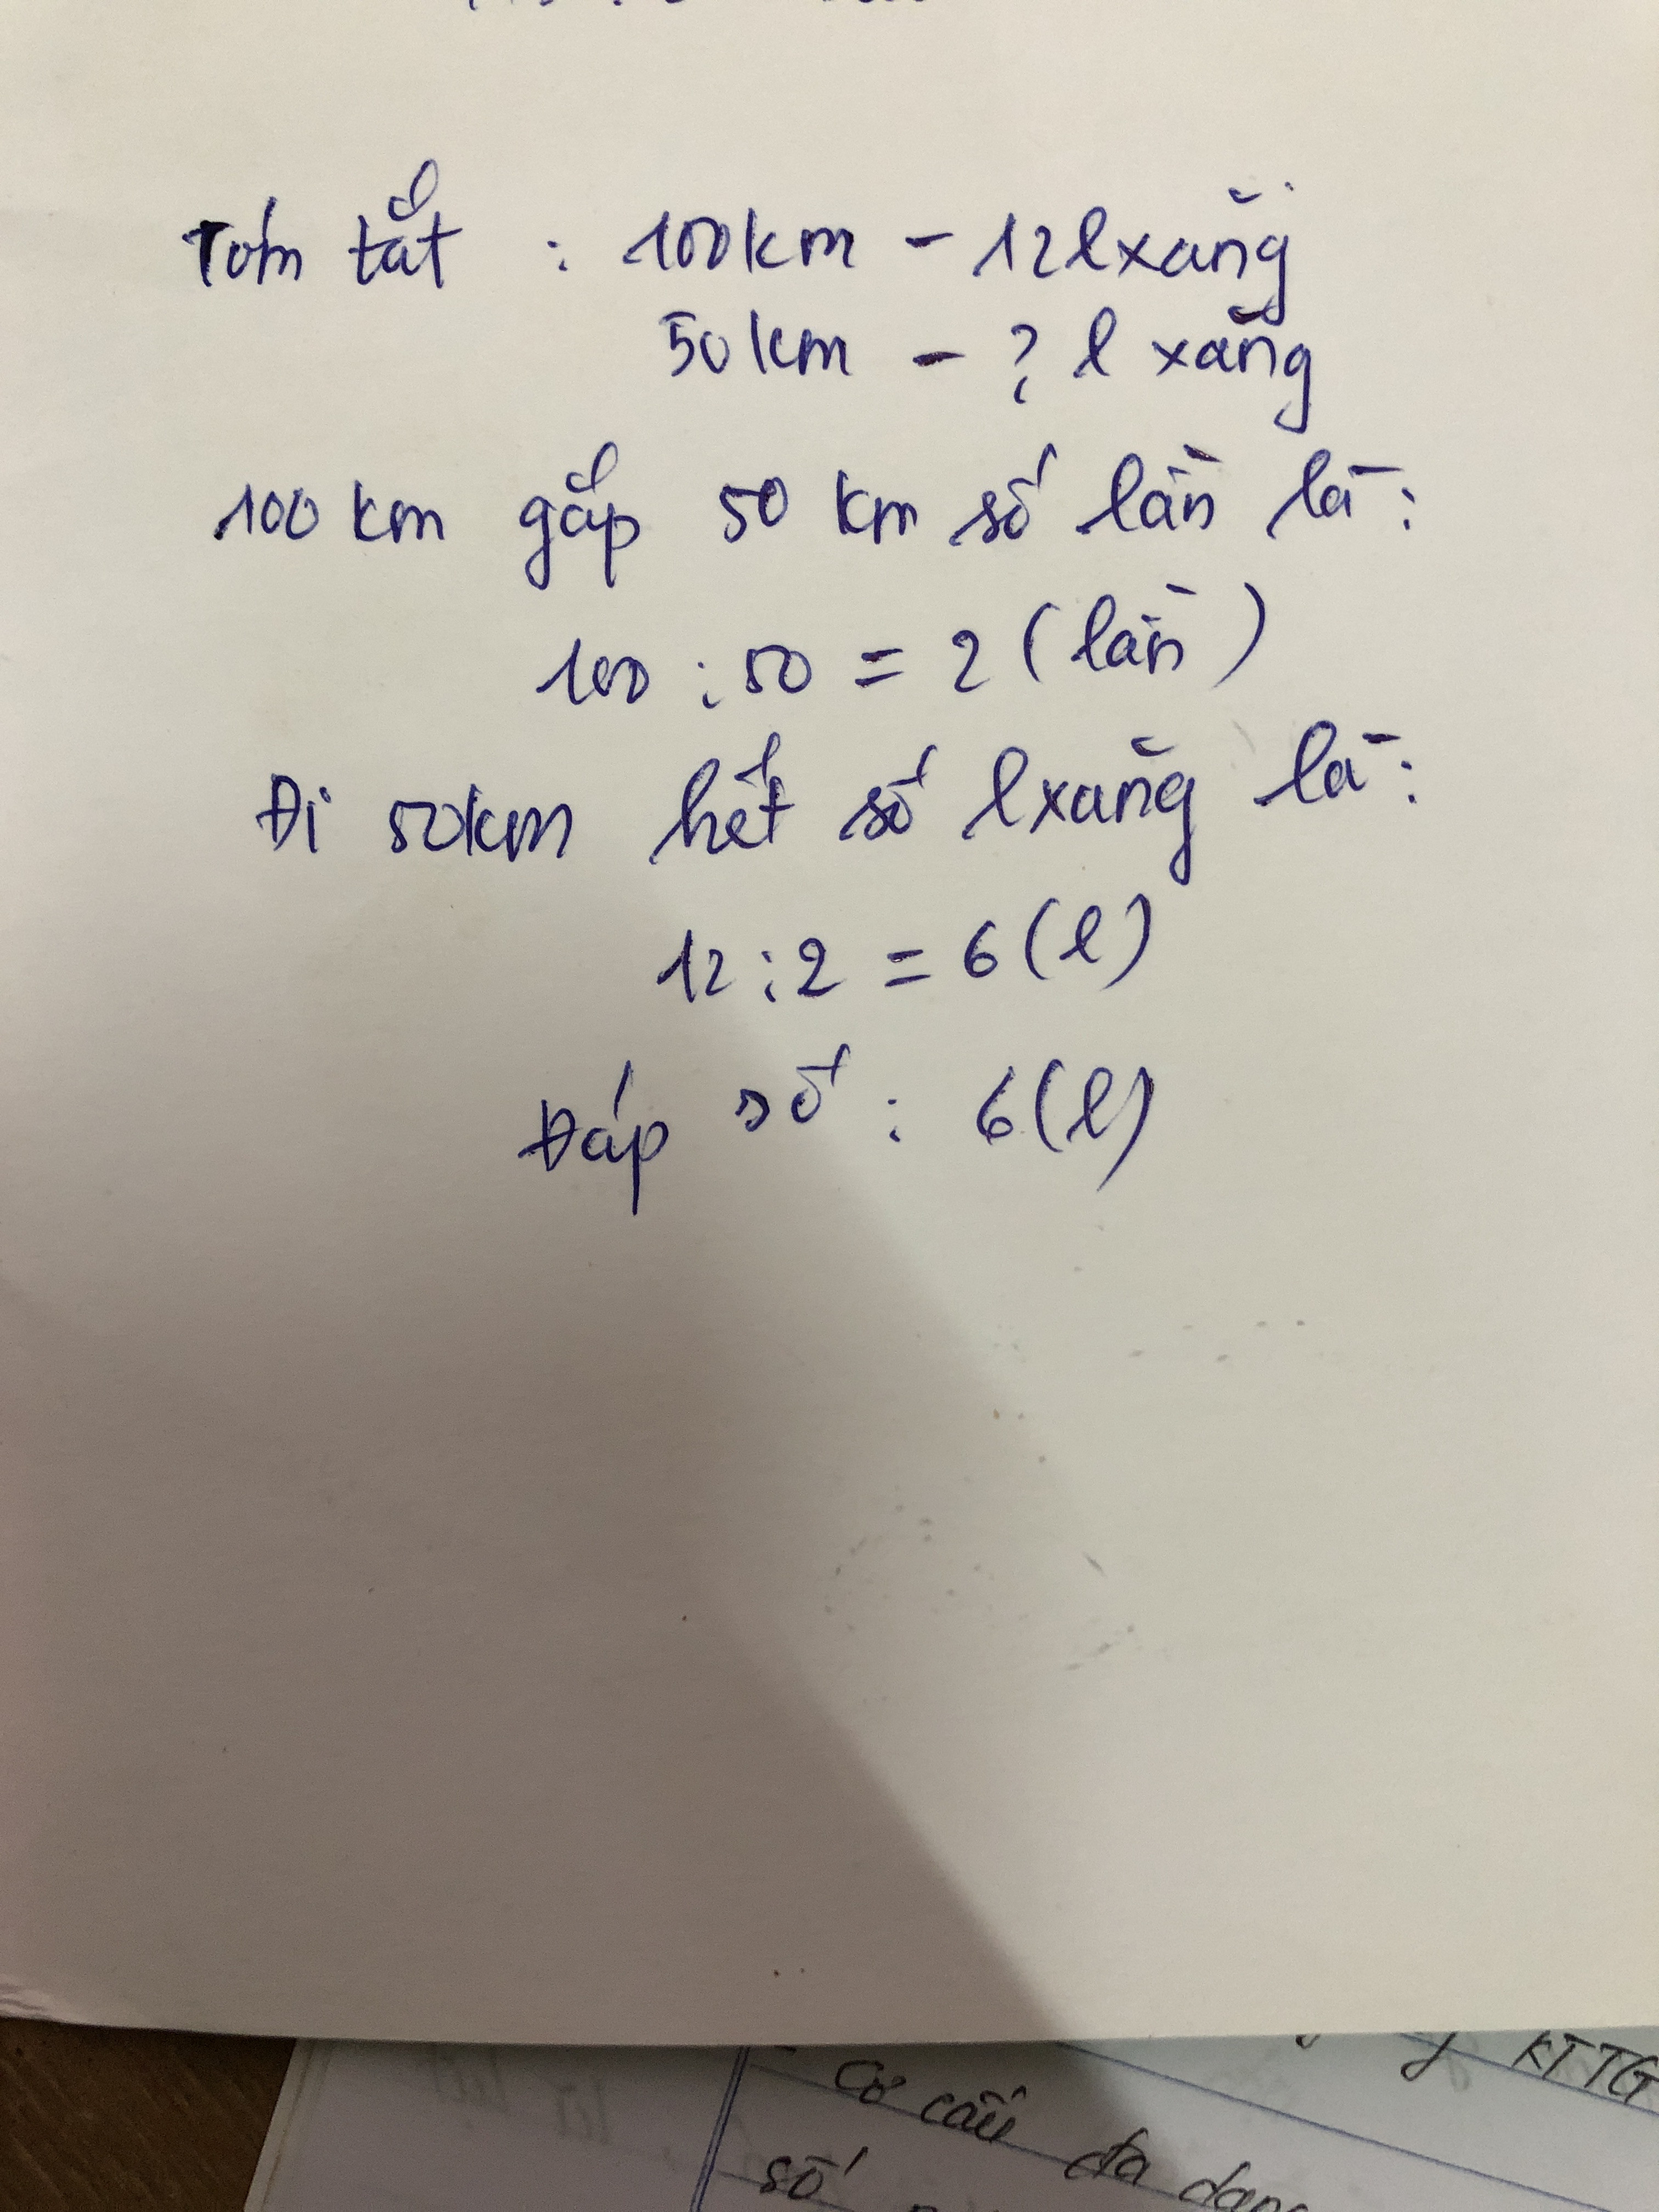 Tóm tắt : 100km - 12lxăng
50km - ? l xăng
100 km gấp 50 km số lần là :
100 : 50 = 2 (lần)
Đi 50km hết số lxăng là :
12 : 2 = 6 (l)
Đáp số : 6 (l)
KTTG
Cơ cấu đa dạng
số